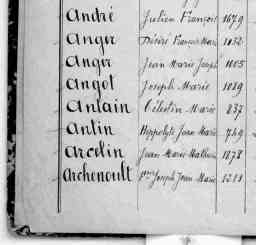 André Julien François 1679
Anger Désiré François Marie 1152
Anger Jean Marie Joseph 1005
Angot Joseph Marie 1089
Antain Célestin Marie 237
Antin Hippolyte Jean Marie 749
Arcelin Jean Marie Mathurin 1278
Archenoult Joseph Jean Marie